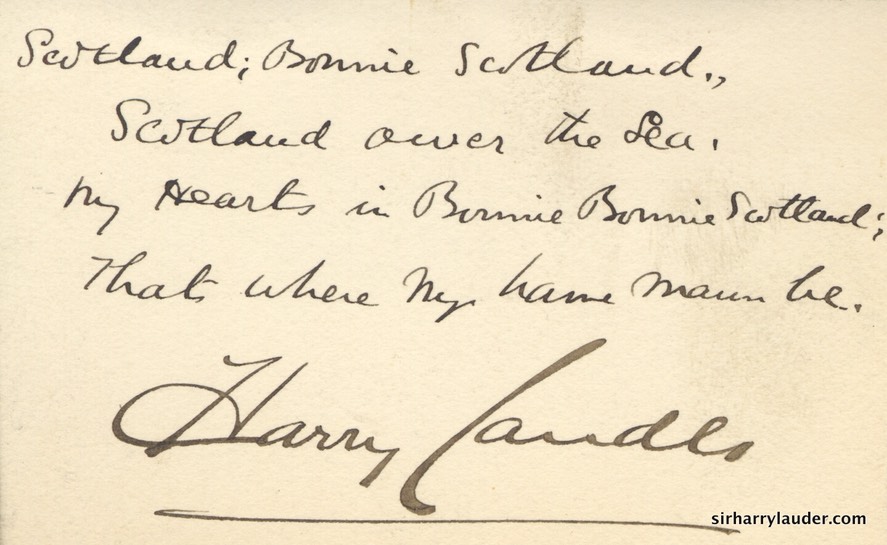 Scotland; Bonnie Scotland.,
Scotland ower the Sea.
My Hearts in Bonnie Bonnie Scotland;
Thats where My hame maun be.
Harry Lauder
sirharrylauder.com